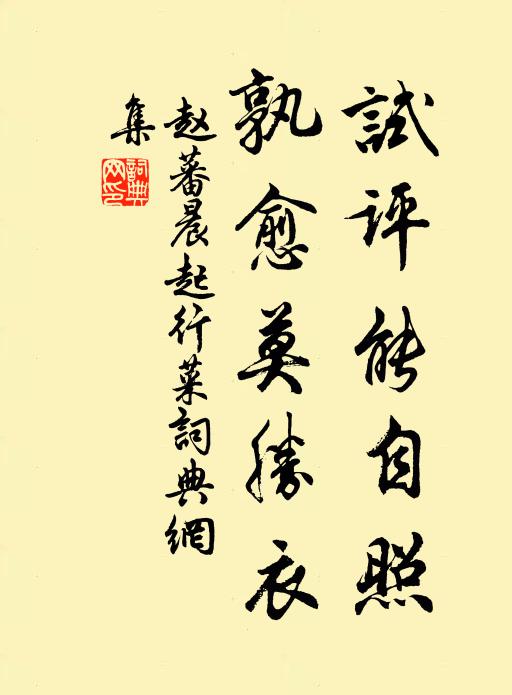 試评能自照
孰愈莫勝衣
赵蕃晨起行菜詞典網
集
詞典
网印